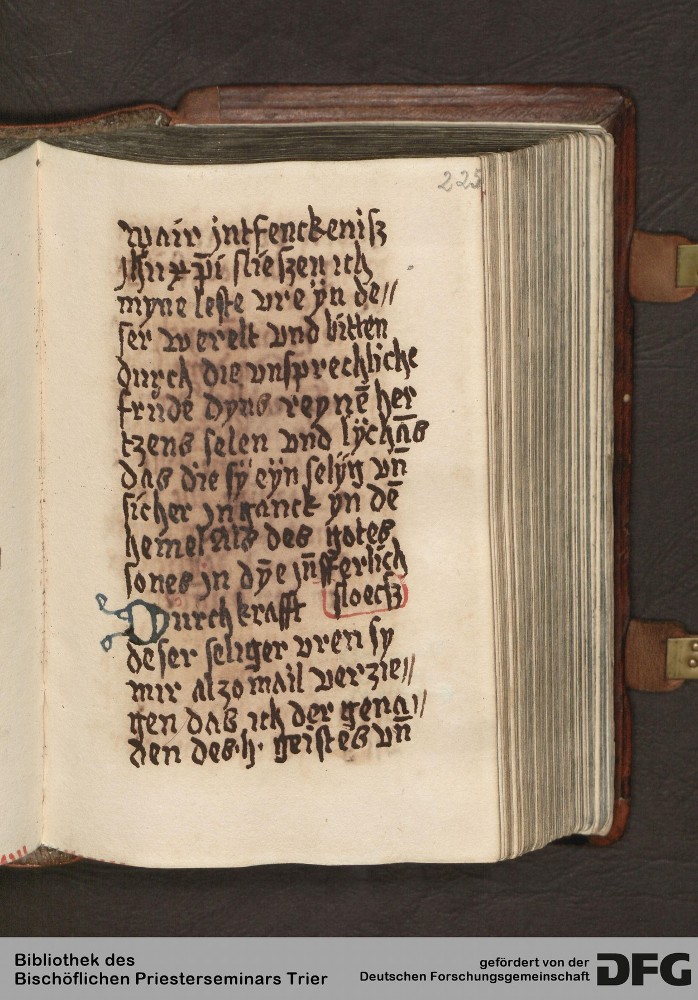 225
wair jntfenckenisz
jhū xp̄i sliessen ich
myne leste vre ÿn de//
ser werelt vnd bitten
durch die vnsprechliche
frude dyns reynē her
tzens selen vnd lÿchās
das die sÿ eÿn selÿg vn̄
sicher jnganck ÿn dē
hemel Als des gotes
sones jn dÿe jn̄fferlich
Durch krafft sloecsz
deser seliger vren sy
mir alzo mail verzie//
gen das ich der gena//
den des·h· geistes vn̄
Bibliothek des
Bischöflichen Priesterseminars Trier
gefördert von der
Deutschen Forschungsgemeinschaft
DFG